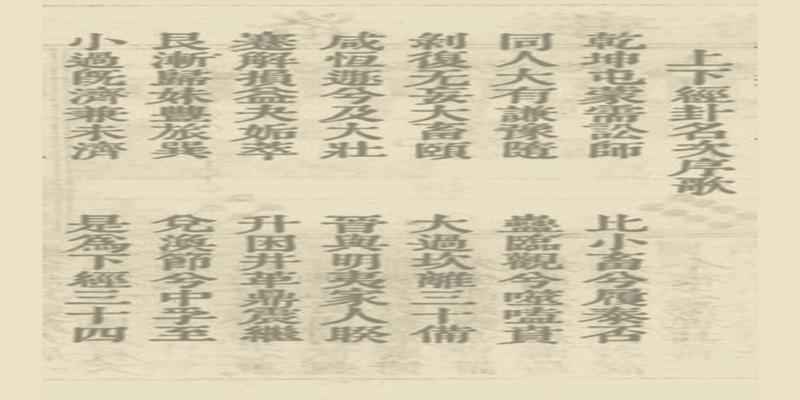 上下經卦名次序歌
乾坤屯蒙需訟師
比小畜兮履泰否
同人大有謙豫隨
蠱臨觀兮噬嗑賁
剝復无妄大畜頤
大過坎離三十備
咸恒遯兮及大壯
晉與明夷家人睽
蹇解損益夬姤萃
升困井革鼎震繼
艮漸歸妹豐旅巽
兌渙節兮中孚至
小過旣濟兼未濟
是爲下經三十四